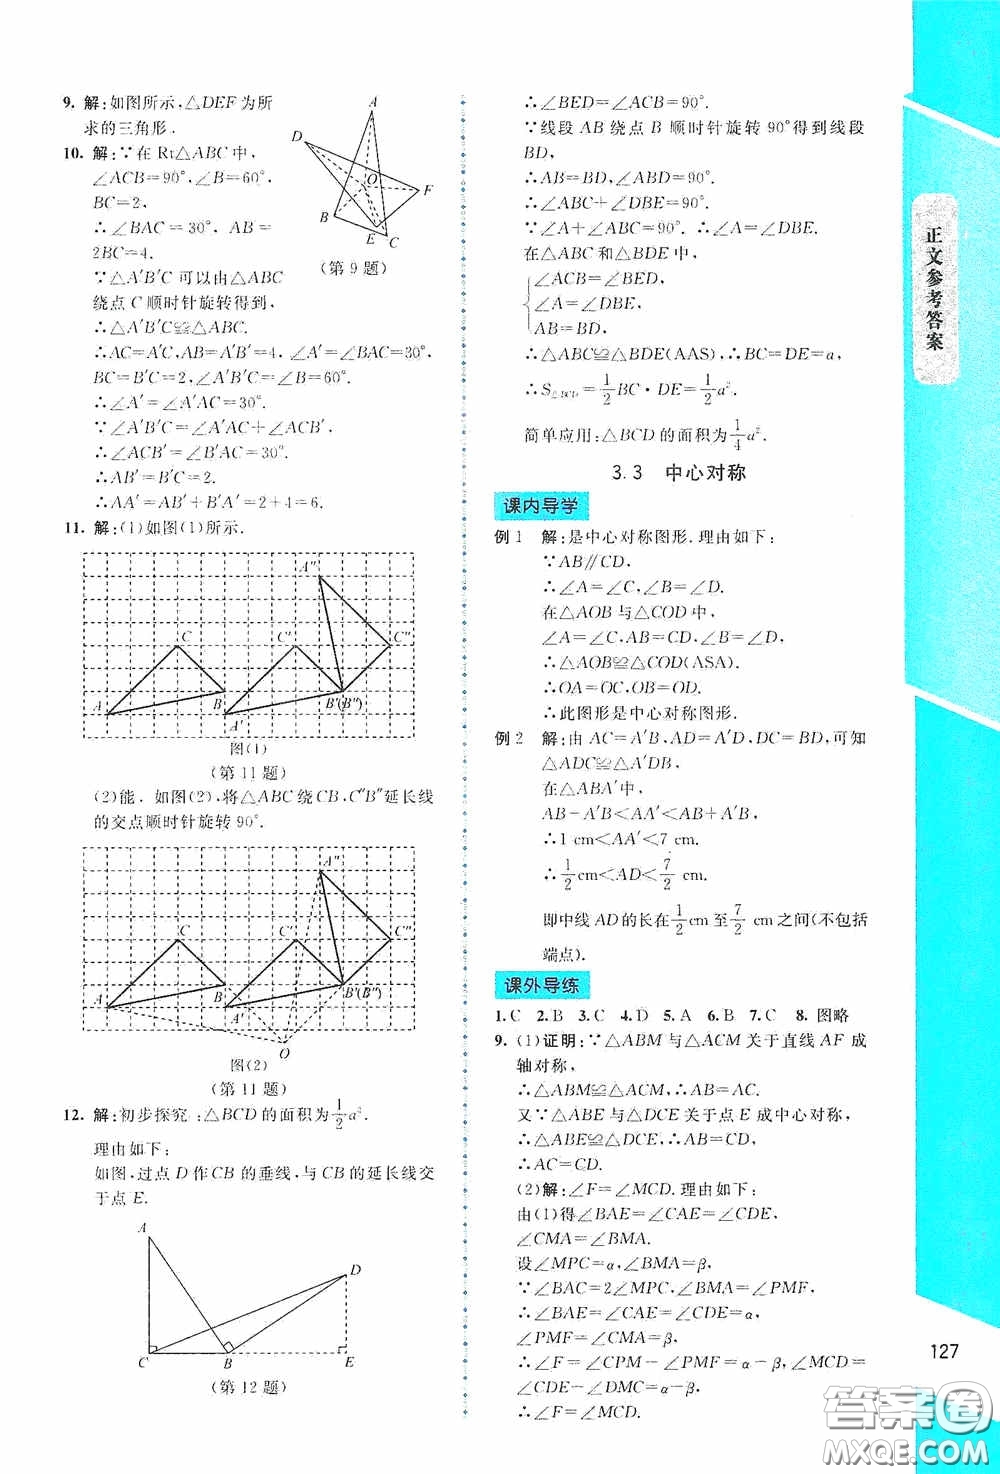 9. 解:如图所示,△DEF为所
求的三角形.
10. 解:∵在Rt△ABC中,
∠ACB=90°,∠B=60°,
BC=2,
∴∠BAC=30°,
∴BC=4.
∵△A′B′C可以由△ABC
绕点C顺时针旋转得到,
∴△A′B′C≌△ABC.
∴AC=A′C,A′B′=AB=4,∠A′=∠BAC=30°,
BC=B′C=2,∠A′B′C=∠B=60°.
∴∠A′=∠A′AC=30°.
∵∠A′B′C=∠A′AC+∠ACB′,
∴∠ACB′=∠B′AC=30°.
∴AB′=B′C=2.
∴AA′=AB′+A′B′=2+4=6.
A
D
O
F
B
E
C
(第9题)
11. 解:(1)如图(1)所示.
A″
C
C′
C″
A
B
A′
B′(B″)
图(1)
(第11题)
(2)能.如图(2),将△ABC绕CB,C″B″延长线
的交点顺时针旋转90°.
A″
C
C′
C″
A
B
A′
B′(B″)
O
图(2)
(第11题)
12. 解:初步探究:△BCD的面积为1/2a².
理由如下:
如图,过点D作CB的垂线,与CB的延长线交
于点E.
A
D
C
B
E
(第12题)
∴∠BED=∠ACB=90°.
∵线段AB绕点B顺时针旋转90°得到线段
BD,
∴AB=BD,∠ABD=90°.
∴∠ABC+∠DBE=90°.
∵∠A+∠ABC=90°.∴∠A=∠DBE.
在△ABC和△BDE中,
∠ACB=∠BED,
∠A=∠DBE,
AB=BD,
∴△ABC≌△BDE(AAS),∴BC=DE=a,
∴S△BCD=1/2BC·DE=1/2a².
简单应用:△BCD的面积为1/4a².
3.3 中心对称
课内导学
例1 解:是中心对称图形.理由如下:
∵AB∥CD.
∴∠A=∠C,∠B=∠D.
在△AOB与△COD中,
∠A=∠C,AB=CD,∠B=∠D,
∴△AOB≌△COD(ASA).
∴OA=OC,OB=OD.
∴此图形是中心对称图形.
例2 解:由AC=A′B,AD=A′D,DC=BD,可知
△ADC≌△A′DB,
在△ABA′中,
AB-A′B<AA′<AB+A′B,
∴1 cm<AA′<7 cm.
∴1/2cm<AD<7/2cm.
即中线AD的长在1/2cm至7/2 cm之间(不包括
端点).
课外导练
1.C 2.B 3.C 4.D 5.A 6.B 7.C 8.图略
9. (1)证明:∵△ABM与△ACM关于直线AF成
轴对称,
∴△ABM≌△ACM,∴AB=AC.
又∵△ABE与△DCE关于点E成中心对称,
∴△ABE≌△DCE,∴AB=CD,
∴AC=CD.
(2)解:∠F=∠MCD.理由如下:
由(1)得∠BAE=∠CAE=∠CDE,
∠CMA=∠BMA.
设∠MPC=α,∠BMA=β,
∵∠BAC=2∠MPC,∠BMA=∠PMF,
∴∠BAE=∠CAE=∠CDE=α,
∠PMF=∠CMA=β,
∴∠F=∠CPM-∠PMF=α-β,∠MCD=
∠CDE-∠DMC=α-β,
∴∠F=∠MCD.
正文参考答案
127
答案圈
MXQE.COM